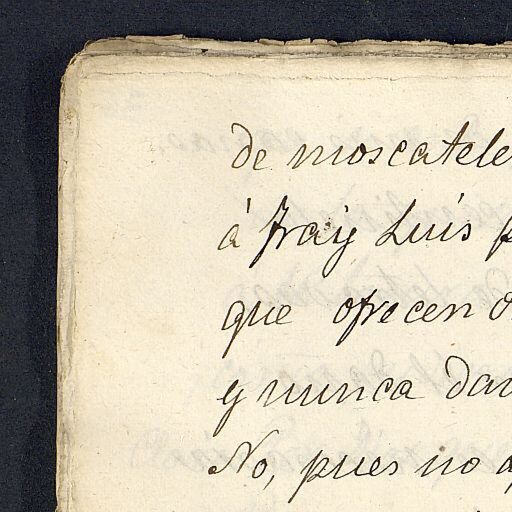 de moscatele
à fray Luis p
que ofrecen o
y nunca dan
No, pues no q